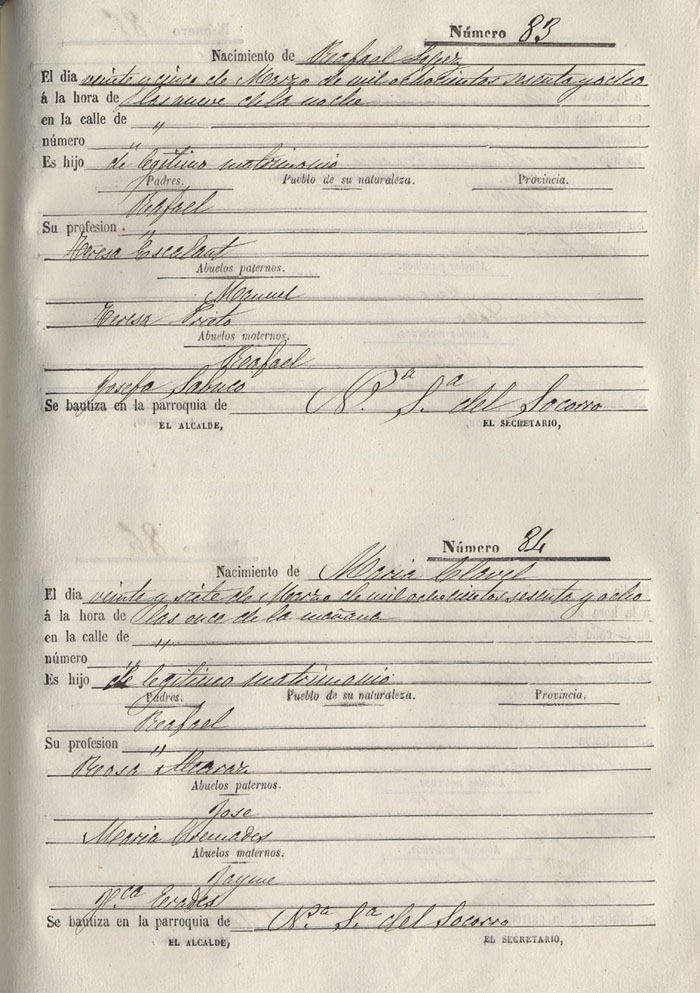 Número 83
Nacimiento de Rafael Lopez
El dia veinte y cinco de Marzo de mil ochocientos sesenta y ocho
á la hora de las nueve de la noche
en la calle de "
número "
Es hijo de legitimo matrimonio
Padres. Pueblo de su naturaleza. Provincia.
Rafael
Su profesion "
Teresa Escalant
Abuelos paternos.
Manuel
Teresa Prieto
Abuelos maternos.
Rafael
Josefa
Se bautiza en la parroquia de N.ª S.ª del Socorro
EL ALCALDE, EL SECRETARIO,
Número 84
Nacimiento de Maria Clavel
El dia veinte y siete de Marzo de mil ochocientos sesenta y ocho
á la hora de las once de la mañana
en la calle de "
número "
Es hijo de legitimo matrimonio
Padres. Pueblo de su naturaleza. Provincia.
Rafael
Su profesion "
Rosa
Abuelos paternos.
Jose
Maria Cremades
Abuelos maternos.
Jayme
F.ca
Se bautiza en la parroquia de N.ª S.ª del Socorro
EL ALCALDE, EL SECRETARIO,